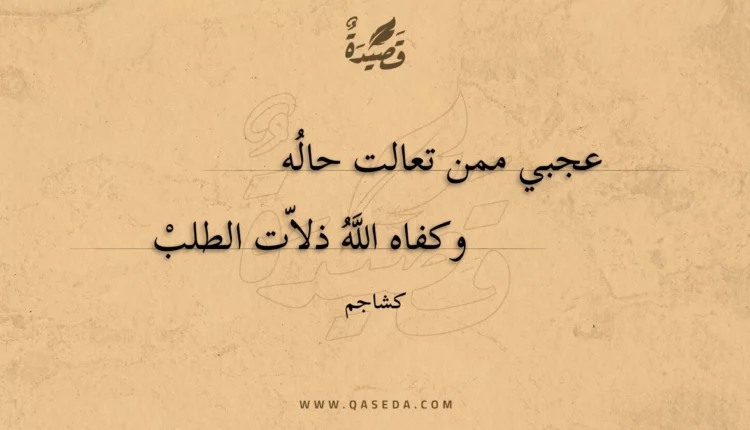 قَصِيْدَةٌ
عجبي ممن تعالت حالُه
وكفاه اللَّهُ ذلاّت الطلبْ
كشاجم
WWW.QASEDA.COM